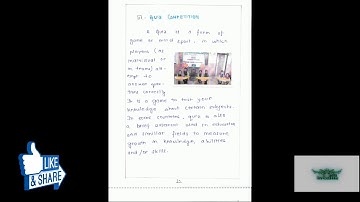 51. QUIZ COMPETITION
A Quiz is a form of
game or mind sport, in which
players (as
individual or
in teams) at-
tempt to
answer ques-
tions correctly.
It is a game to test your
knowledge about certain subjects.
In some countries, quiz is also
a brief assessment used in education
and similar fields to measure
growth in knowledge, abilities
and/or skills.
LIKE
& SHARE